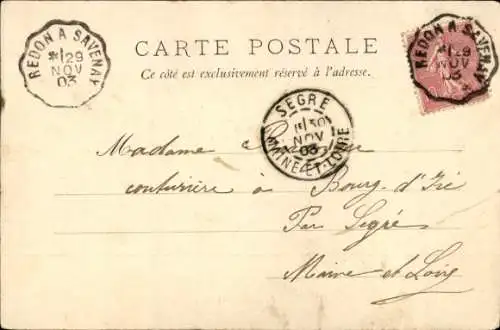 REDON A SAVENAY
*1/29
NOV
03
CARTE POSTALE
Ce côté est exclusivement réservé à l'adresse.
REDON A SAVENAY
*1/29
NOV
03
SEGRE
30
NOV
03
MAINE-ET-LOIRE
Madame
couturière à Bourg-d'Iré
Par Segré
Maine et Loire